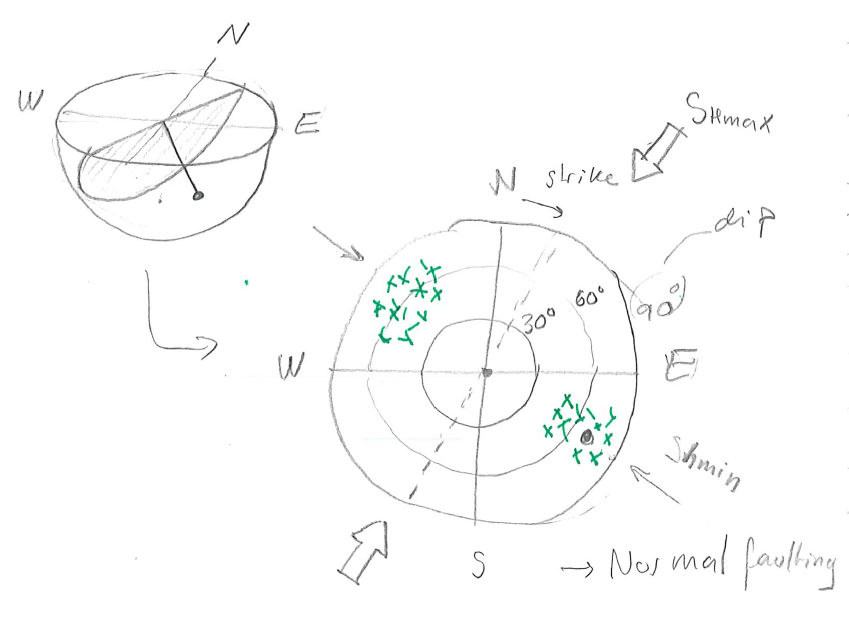 N
W
E
SHmax
N strike
dip
30° 60° 90°
W
E
Shmin
S
→ Normal faulting